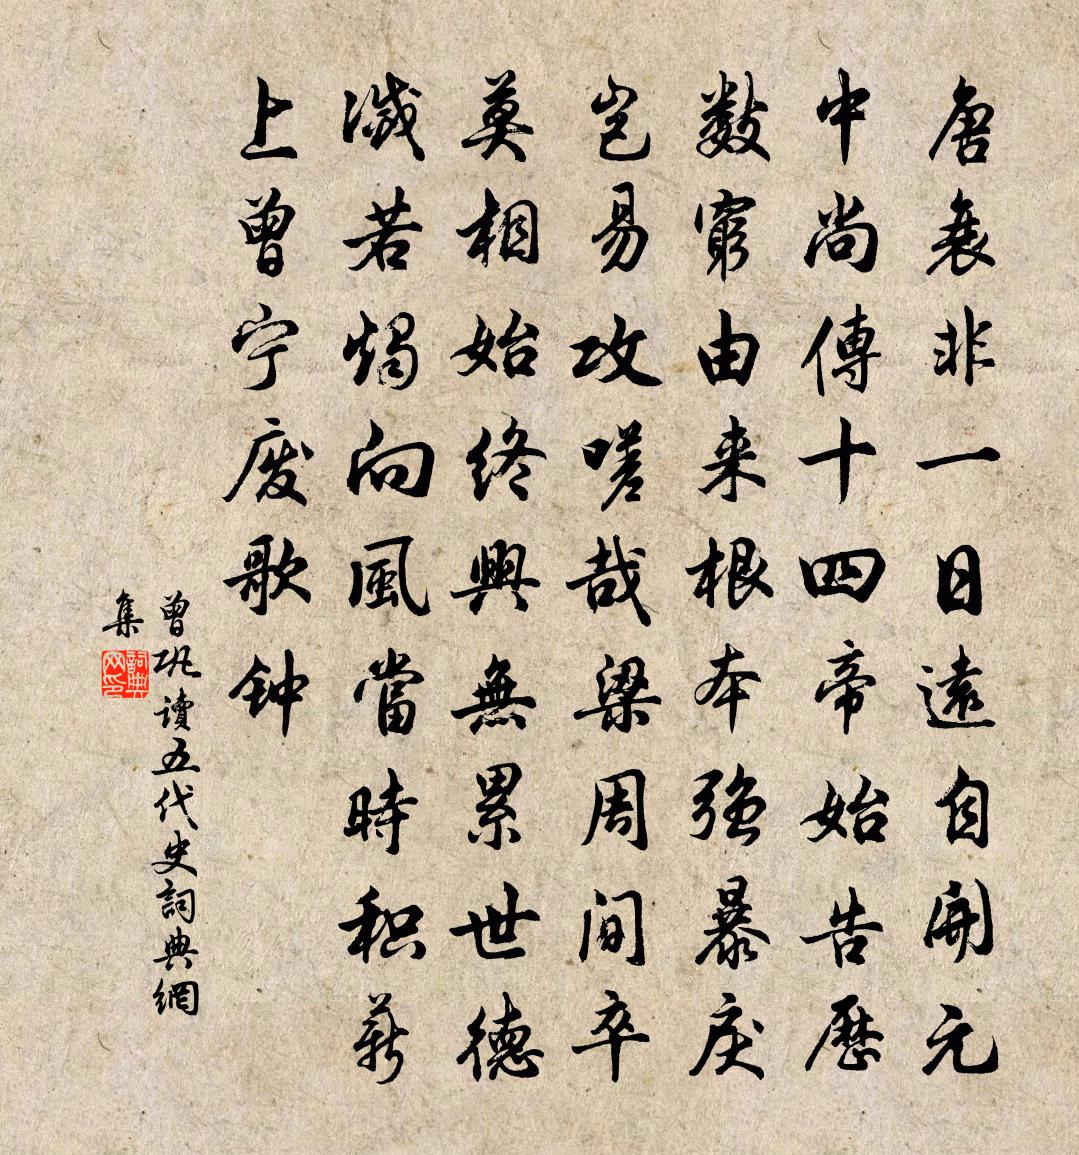 唐衰非一日遠自開元
中尚傳十四帝始告歷
數窮由来根本強暴戾
岂易攻嗟哉梁周间卒
莫相始終興無累世德
滅若燭向風當時积薪
上曾宁废歌钟
曾巩讀五代史詞典網
集
詞典网印